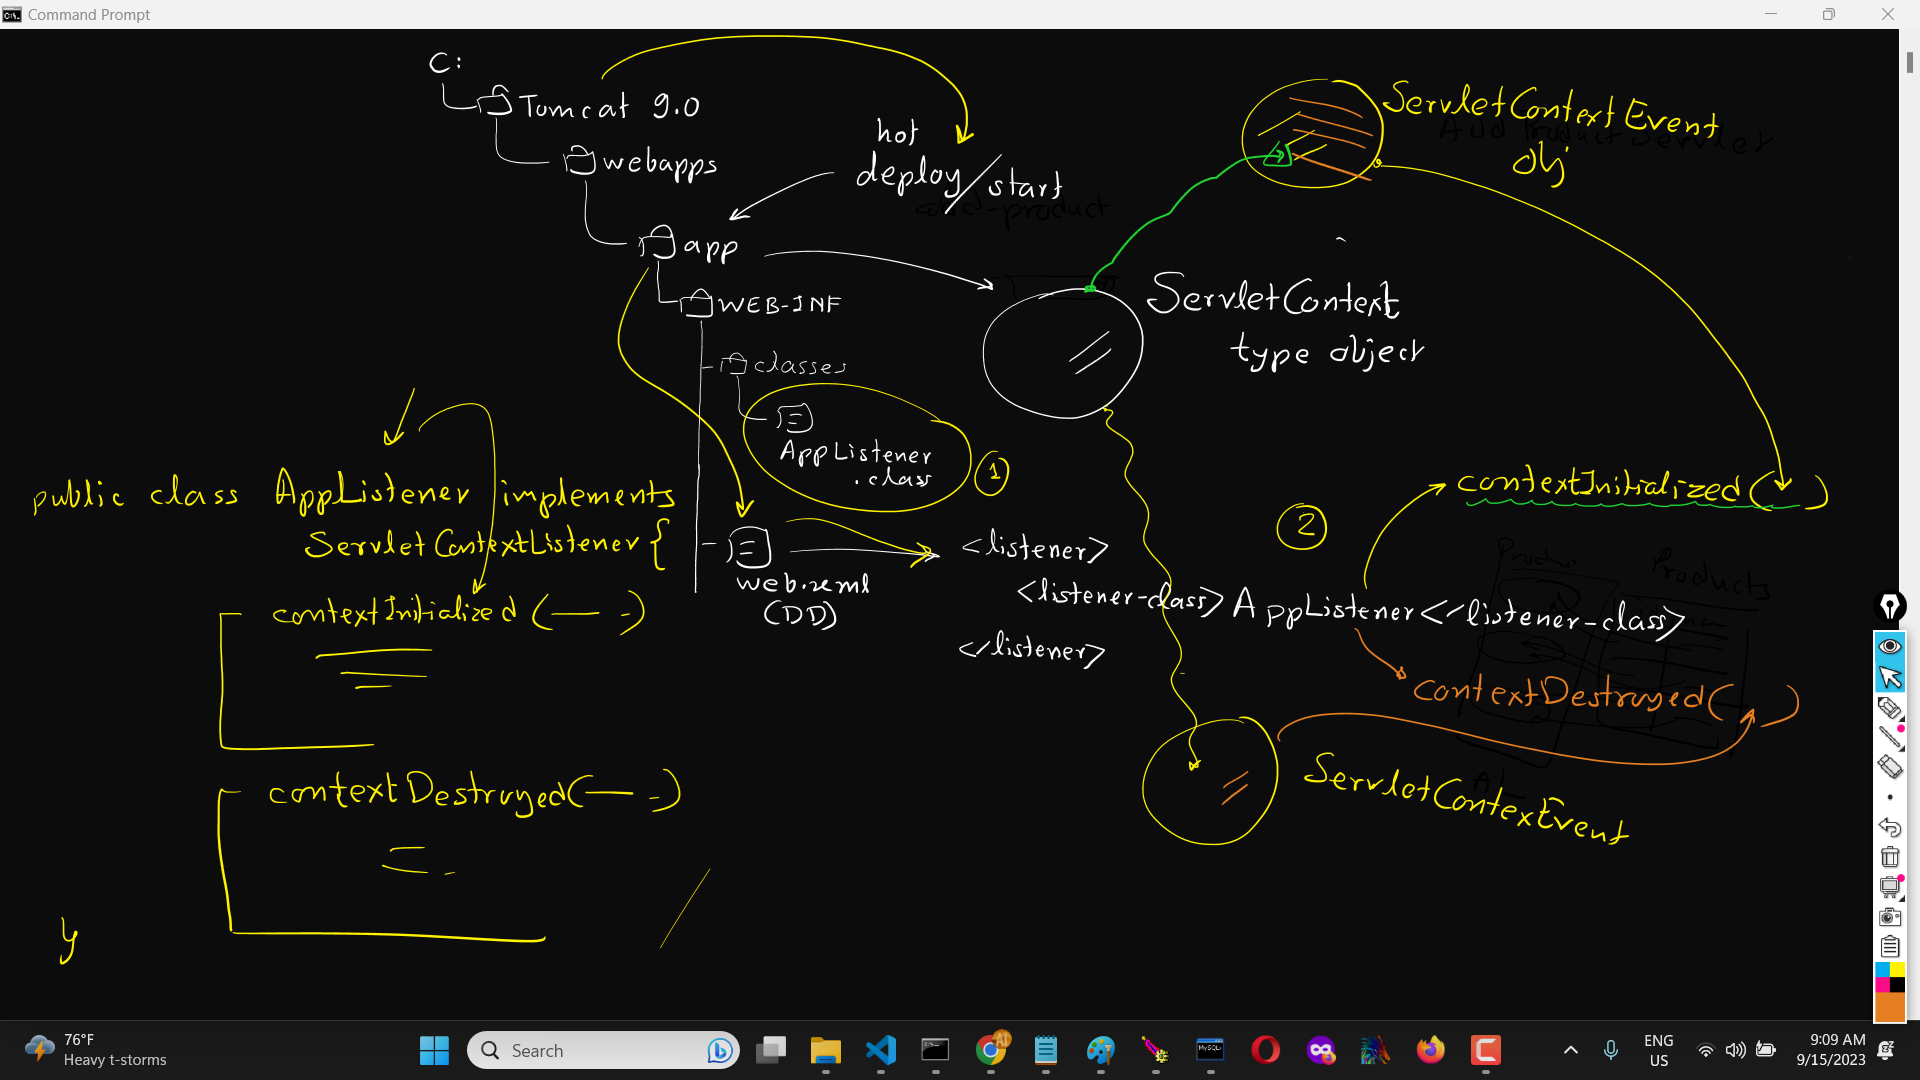 Command Prompt
C:
Tomcat 9.0
webapps
hot
deploy/start
app
WEB-INF
classes
AppListener
.class
1
web.xml
(DD)
ServletContextEvent
obj
add-product
ServletContext
type object
public class AppListener implements
ServletContextListener {
contextInitialized (— -)
contextDestroyed(— -)
y
<listener>
<listener-class>AppListener</listener-class>
</listener>
2
contextInitialized( )
Products
contextDestroyed( )
ServletContexEvent
76°F
Heavy t-storms
Search
ENG
US
9:09 AM
9/15/2023